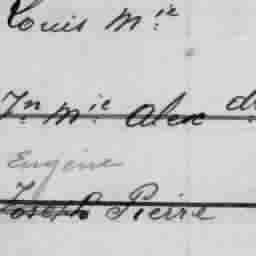 Louis Mie
Jn Mie Alex
Eugène
Joseph Pierre